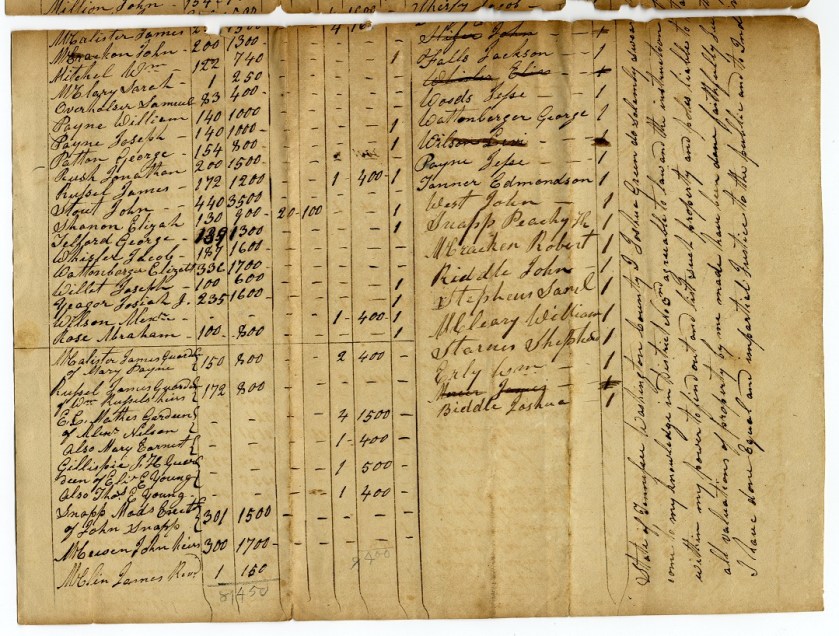 Million John
McAlister James
McCrackon John 200 1300
Mitchel Wm 122 740 1
McClary Sarah 1 250
Overholser Samuel 83 400
Payne William 140 1000
Payne Joseph 140 1000
Patton George 154 800
Rush Jonathan 200 1500
Russel James 172 1200 1 400 1
Stout John 440 3500
Shanon Elizah 130 900 20 100 1
Telford George 1300
Whisler Jacob 187 1600
Wattonbarger Elizth 336 1700
Willet Joseph 100 600
Yeagor Josiah J. 235 1600 1
Wilson Alexr 1 400 1
Rose Abraham 100 800 1
McAlister James Guard
of Mary Payne 150 800 2 400
Russel James Guard
of Wm Russels heirs 172 800
E. L. Mathes Gardeen
of Alexr Nilson 4 1500
Also Mary Earnest 1 400
Gillispie J. H. Guar
deen of Eliz E Young 1 500
Also Thos E Young 1 400
Snapp Mads Exect
of John Snapp 301 1500
John heirs 300 1700
McClin James Rev 1 150
81450
Falls Jackson 1
Woods Jesse 1
Wattonbarger George 1
Wilson Levi
Payne Jesse 1
Tanner Edmondson 1
West John 1
Snapp Peachy 1
McCracken Robert 1
Riddle John 1
Stephens Saml 1
McCleary William 1
Starnes Shepherd 1
Erly Wm 1
James
Biddle Joshua 1
State of Tennessee Washington County I Joshua Green do solemnly swear
come to my knowledge in District No agreeable to law and the instruction
within my power to find out and list such property and poles liable to
all valuations of property by me made have been done faithfully
I have done Equal and impartial Justice to the public and to